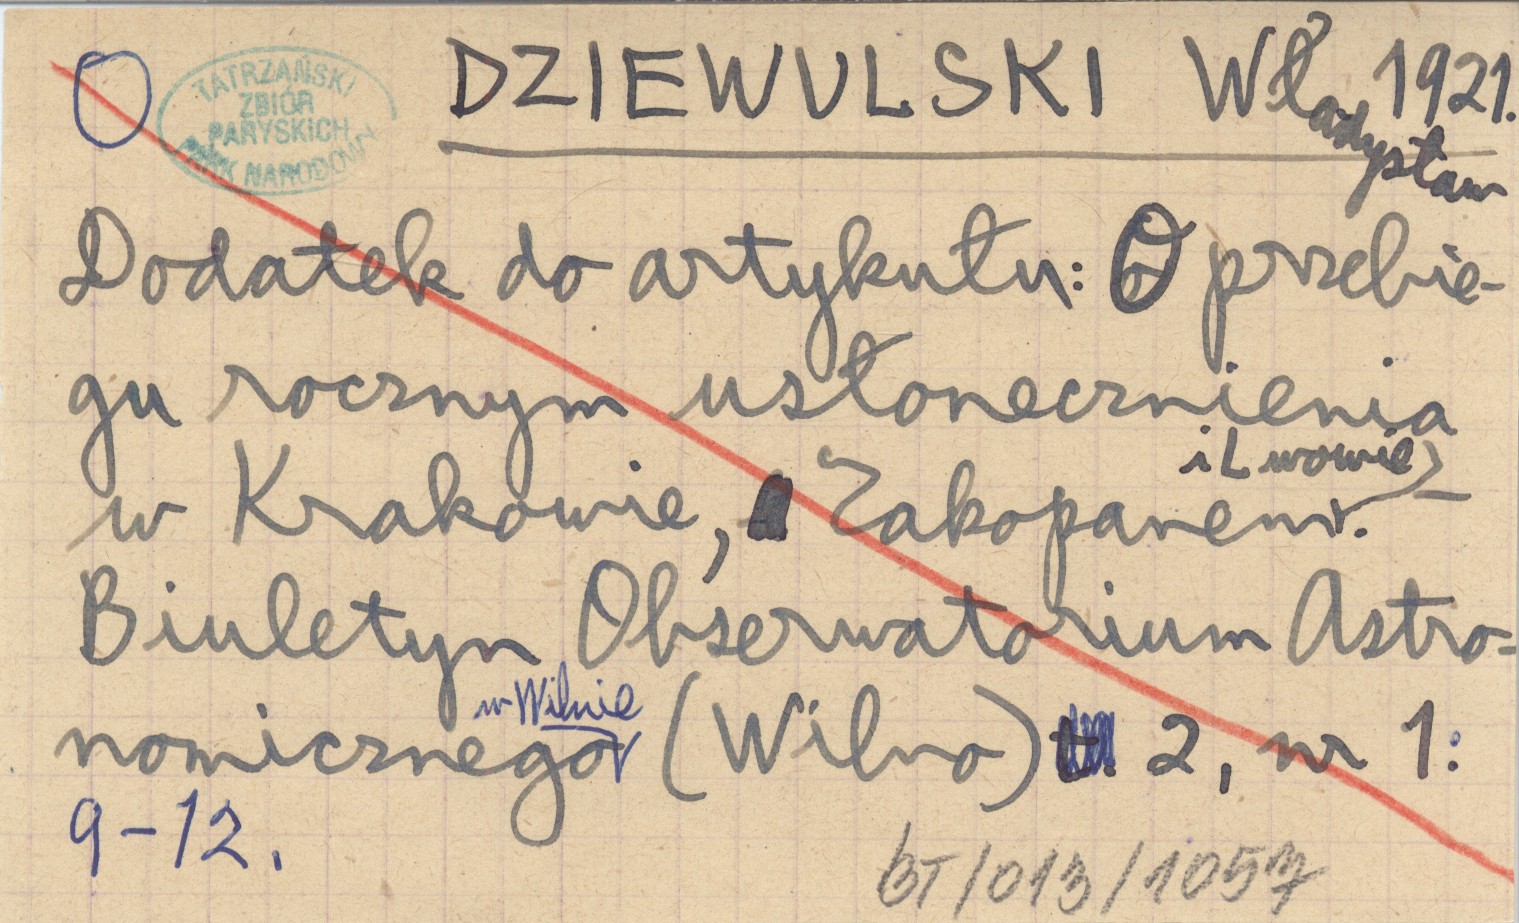 O
TATRZAŃSKI
ZBIÓR
PARYSKICH
PARK NARODOWY
DZIEWULSKI Władysław 1921.
Dodatek do artykułu: O przebie-
gu rocznym usłonecznienia
w Krakowie, Zakopanem i Lwowie. –
Biuletyn Obserwatorium Astro-
nomicznego w Wilnie (Wilno) t. 2, nr 1:
9-12.
BT/013/1057